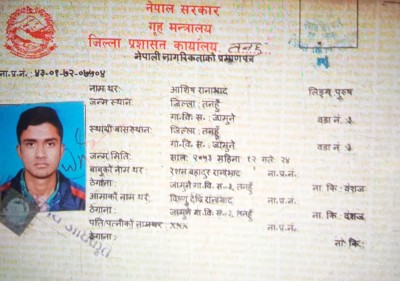 नेपाल सरकार
गृह मन्त्रालय
जिल्ला प्रशासन कार्यालय, तनहुँ
नेपाली नागरिकताको प्रमाणपत्र
ना.प्र.नं.: ४३-०१-७२-०५५०४
नाम थर: आशिष रानाभाट लिङ्गः पुरुष
जन्म स्थान: जिल्ला: तनहुँ
गा.वि.स.: जामुने वडा नं. ३
स्थायी बासस्थान: जिल्ला: तनहुँ
गा.वि.स.: जामुने वडा नं. ३
जन्म मिति: साल: २०५३ महिना १२ गते २४
बाबुको नाम थर: रेशम बहादुर रानाभाट ना.प्र.नं.
ठेगाना: जामुने गा.वि.स.-३, तनहुँ ना. कि: वंशज
आमाको नाम थर: विष्णु देवि रानाभाट ना.प्र.नं.
ठेगाना: जामुने गा.वि.स.-३, तनहुँ ना. कि: वंशज
पति/पत्नीको नामथर: xxx ना.प्र.नं.
ठेगाना: ना. कि: